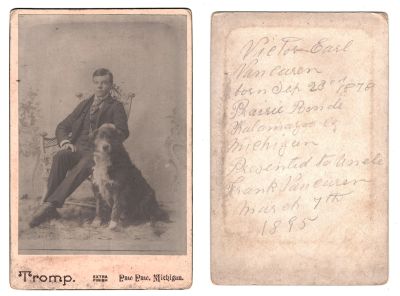 Tromp. EXTRA FINISH Paw Paw, Michigan.
Victor Earl
Vancuren
born Sep 23rd 1878
Prairie Ronde
Kalamazoo Co
Michigan
Presented to Uncle
Frank Vancuren
March 7th
1895